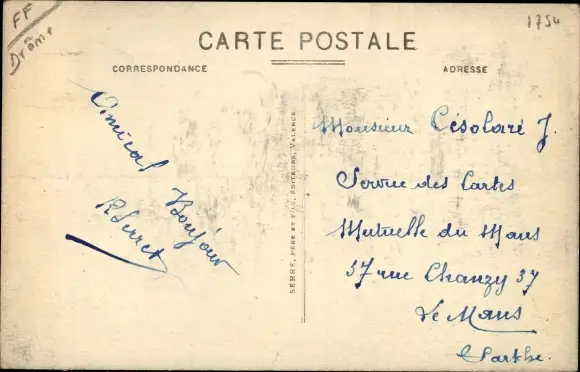 FF
Drôme
1754
CARTE POSTALE
CORRESPONDANCE
ADRESSE
Amical
Bonjour
R Serret
SERRE, PÈRE ET FILS, ÉDITEURS, VALENCE
Monsieur Césolaré J.
Service des Cartes
Mutuelle du Mans
37 rue Chanzy 37
Le Mans
Sarthe.